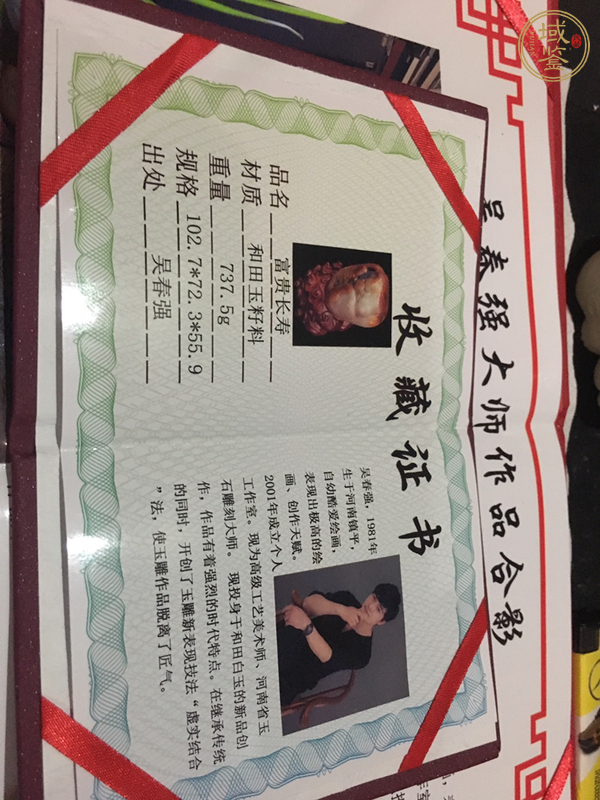 吴春强大师作品合影
收藏证书
品名 富贵长寿
材质 和田玉籽料
重量 737.5g
规格 102.7*72.3*55.9
出处 吴春强
吴春强，1981年
生于河南镇平，
自幼酷爱绘画，
表现出极高的绘
画、创作天赋。
2001年成立个人
工作室。现为高级工艺美术师、河南省玉
石雕刻大师。 现投身于和田白玉的新品创
作，作品有着强烈的时代特点。在继承传统
的同时，开创了玉雕新表现技法“虚实结合
”法，使玉雕作品脱离了匠气。
域鉴